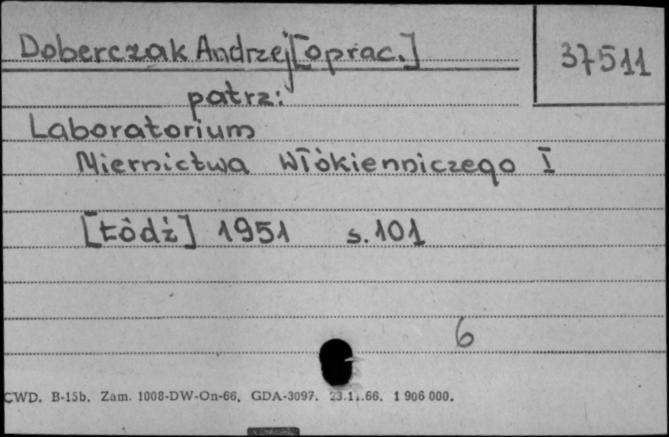 Doberczak Andrzej [oprac.]
37511
patrz:
Laboratorium
Miernictwa Włókienniczego I
[Łódź] 1951 s. 101
6
CWD. B-15b. Zam. 1008-DW-On-66. GDA-3097. 23.11.66. 1 906 000.